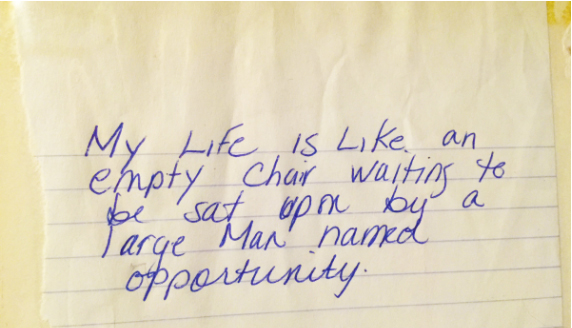 My Life is Like an
empty Chair waiting to
be sat upon by a
large Man named
opportunity.